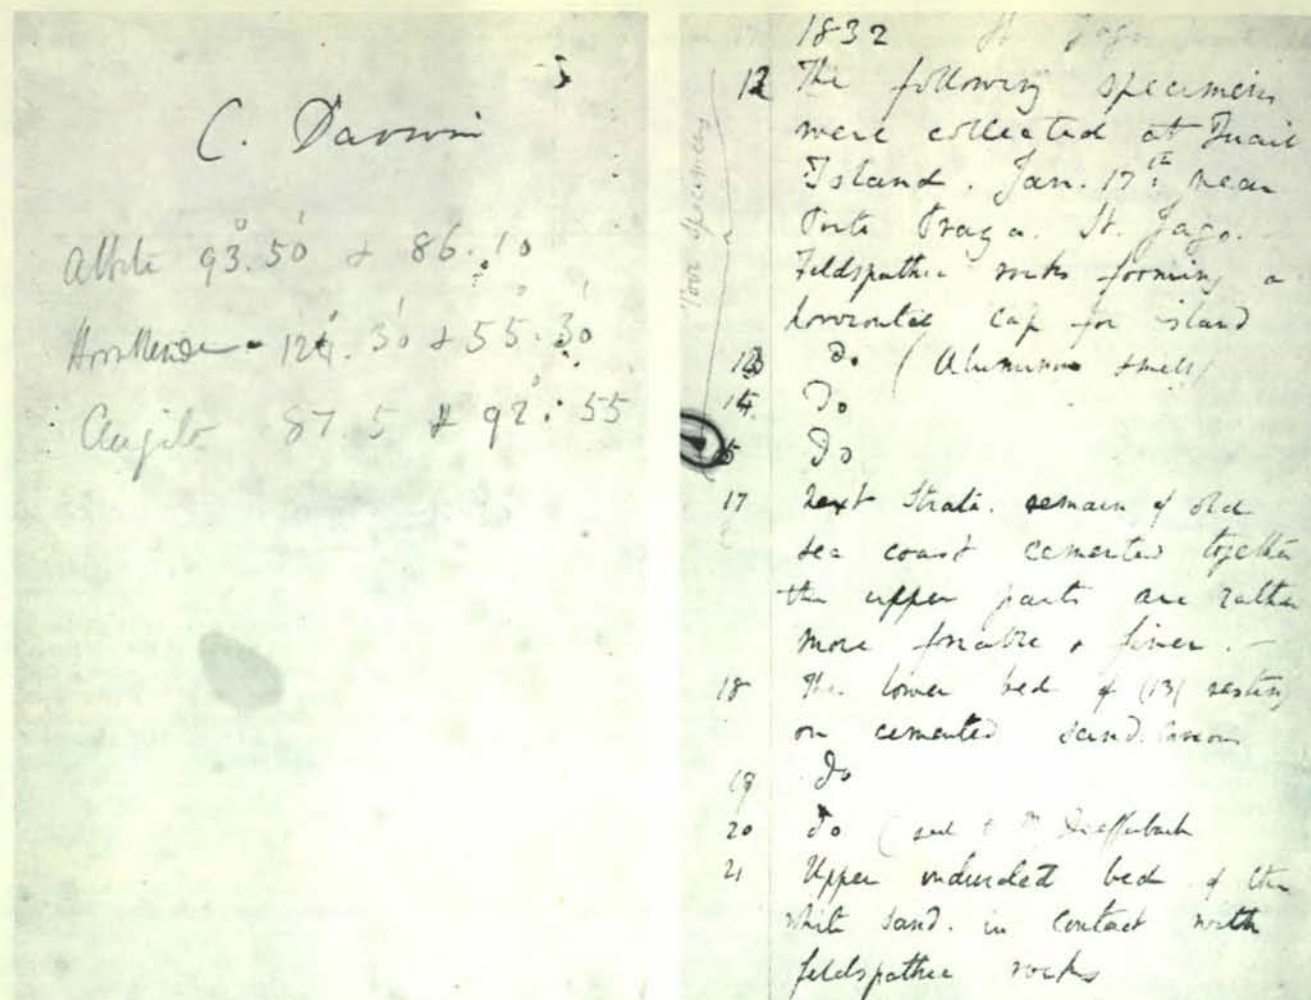 C. Darwin
Albite 93°.50' & 86°.10
Hornblende - 124°. 30' & 55°. 30'
Augite 87. 5 & 92°. 55
1832 St Jago
12 The following specimens
were collected at Quail
Island. Jan. 17th. near
Porto Praya. St. Jago.
Feldspathic rocks forming a
horizontal cap for island
13 Do (Aluminous smell)
14 Do
15 Do
Poor specimens
17 Next Strata. remain of old
sea coast cemented together
the upper parts are rather
more friable & finer. -
18 The lower bed of (13) resting
on cemented sand.
19 Do
20 Do (
21 Upper indurated bed of the
white sand. in contact with
feldspathic rocks